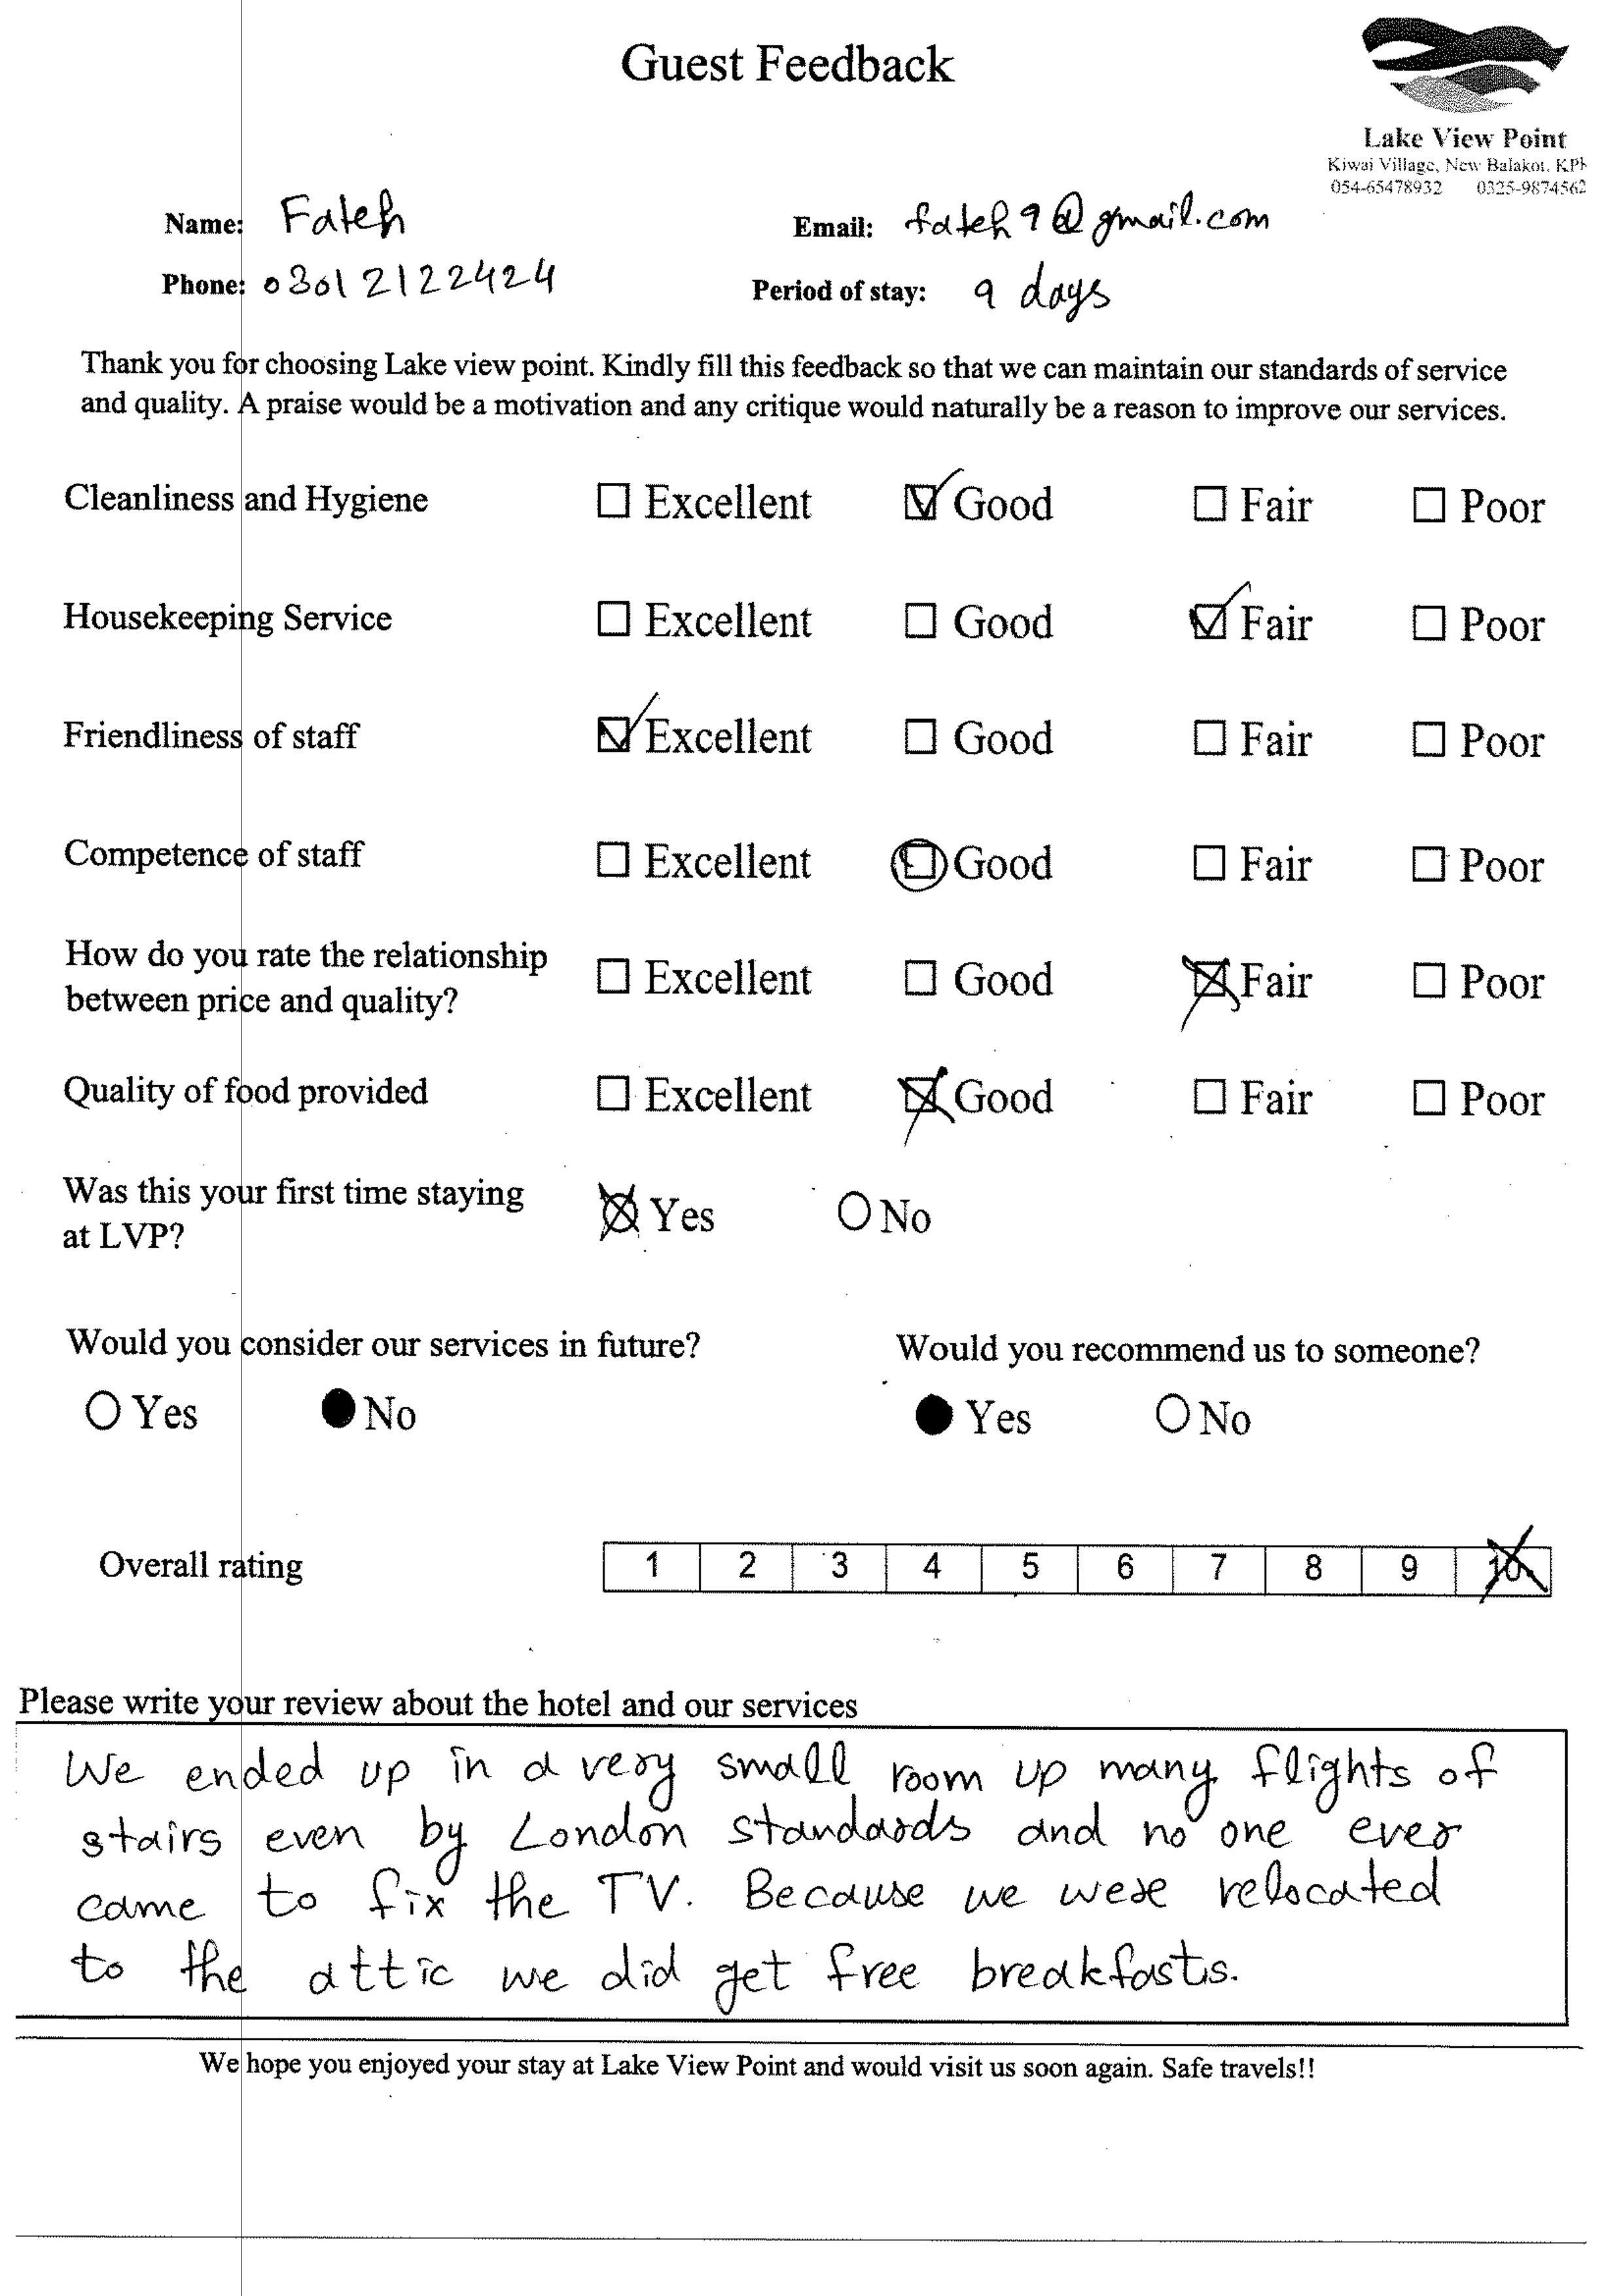 Guest Feedback
Lake View Point
Kiwai Village, New Balakot, KPK
054-65478932 0325-9874562
Name: Fateh Email: fateh9@gmail.com
Phone: 03012122424 Period of stay: 9 days
Thank you for choosing Lake view point. Kindly fill this feedback so that we can maintain our standards of service
and quality. A praise would be a motivation and any critique would naturally be a reason to improve our services.
Cleanliness and Hygiene ☐ Excellent ☑ Good ☐ Fair ☐ Poor
Housekeeping Service ☐ Excellent ☐ Good ☑ Fair ☐ Poor
Friendliness of staff ☑ Excellent ☐ Good ☐ Fair ☐ Poor
Competence of staff ☐ Excellent ☑ Good ☐ Fair ☐ Poor
How do you rate the relationship
between price and quality? ☐ Excellent ☐ Good ☒ Fair ☐ Poor
Quality of food provided ☐ Excellent ☒ Good ☐ Fair ☐ Poor
Was this your first time staying
at LVP? ☒ Yes ○ No
Would you consider our services in future? Would you recommend us to someone?
○ Yes ● No ● Yes ○ No
Overall rating 1 2 3 4 5 6 7 8 9 10
Please write your review about the hotel and our services
We ended up in a very small room up many flights of
stairs even by London standards and no one ever
came to fix the TV. Because we were relocated
to the attic we did get free breakfasts.
We hope you enjoyed your stay at Lake View Point and would visit us soon again. Safe travels!!